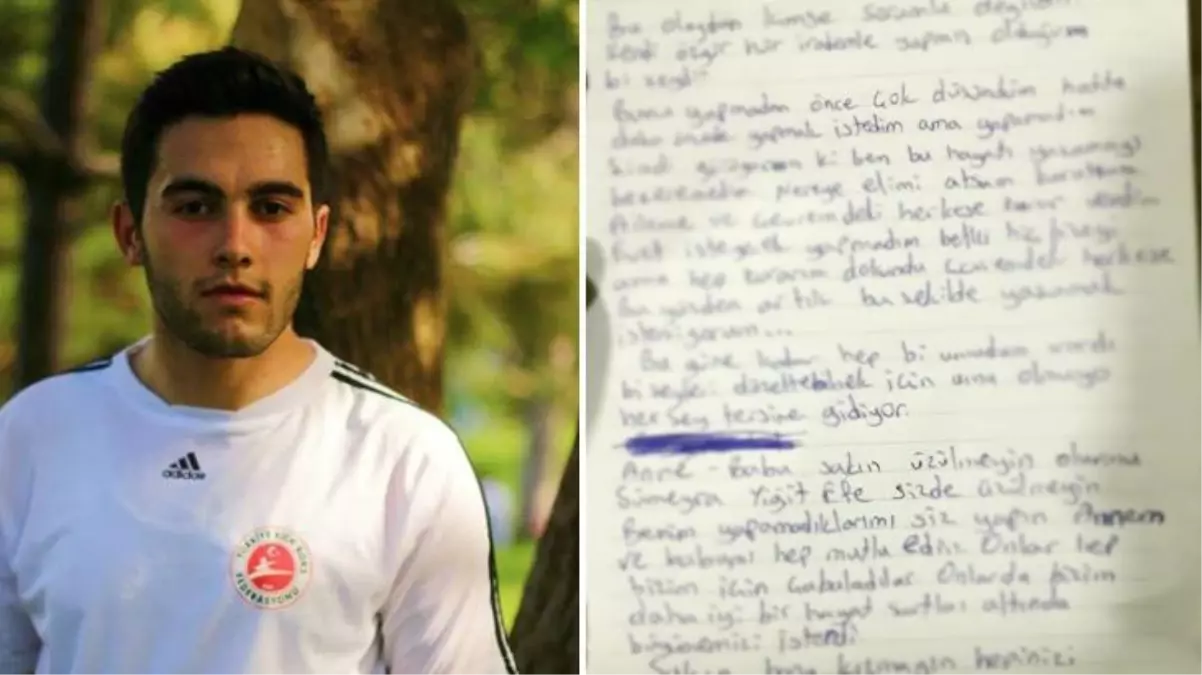 adidas
TÜRKİYE KICK BOKS FEDERASYONU
Bu olaydan kimse sorumlu değildir
Kendi özgür hür irademle yapmış olduğum
bi şeydir
Bunu yapmadan önce çok düşündüm hatta
daha önce yapmak istedim ama yapamadım
ki ben bu hayatı yaşamayı
beceremedim Nereye elimi atsam
Aileme ve Çevremdeki herkese zarar verdim
Evet isteyerek yapmadım belki hiç bişeyi
ama hep zararım dokundu Çevremdeki herkese
Bu yüzden artık bu şekilde yaşamak
istemiyorum...
Bu güne kadar hep bi umudum vardı
bişeyleri düzeltebilmek için ama olmuyo
herşey tersine gidiyor.
Anne - Baba sakın üzülmeyin
Sümeyra Yiğit Efe sizde üzülmeyin
Benim yapamadıklarımı siz yapın Annem
ve babamı hep mutlu edin Onlar hep
bizim için Çabaladılar Onlarda bizim
daha iyi bir hayat şartları altında
istendi
Sakın bana kızmayın hepinizi